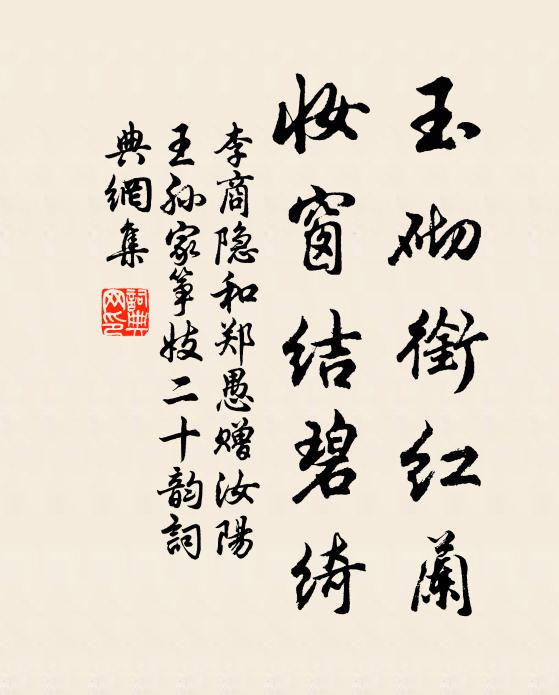 玉砌銜红蘭
妆窗结碧绮
李商隐和郑愚赠汝陽
王孙家筝妓二十韵詞
典網集
詞典網印